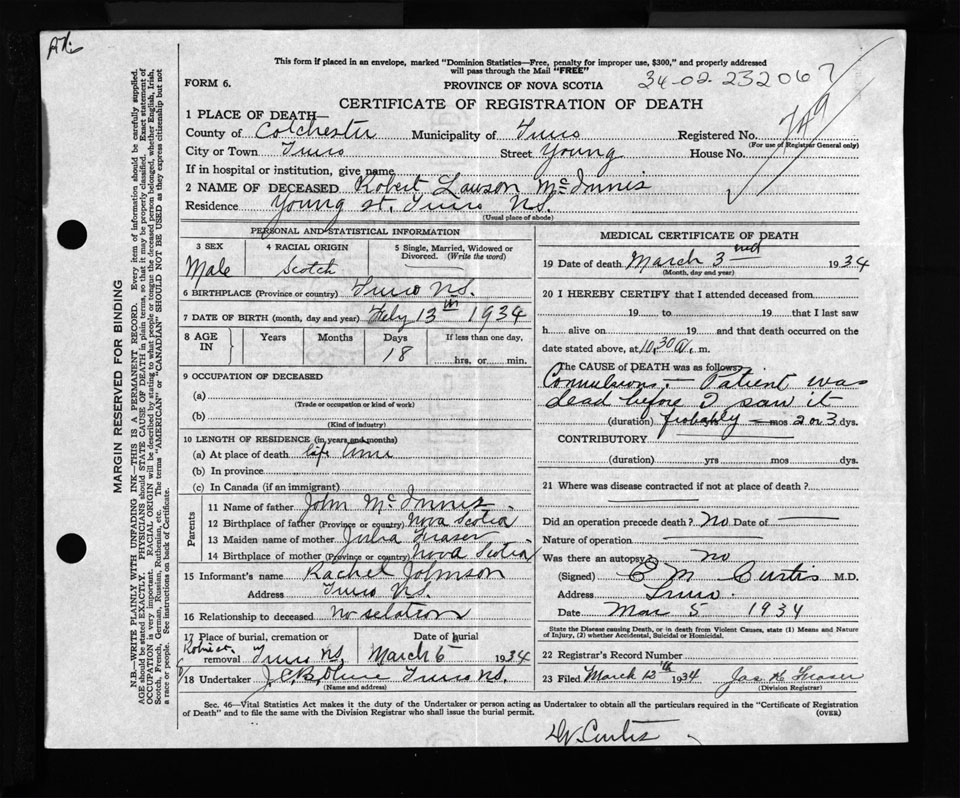 This form if placed in an envelope, marked "Dominion Statistics—Free, penalty for improper use, $300," and properly addressed
will pass through the Mail "FREE"
FORM 6. PROVINCE OF NOVA SCOTIA 34-02-232067
CERTIFICATE OF REGISTRATION OF DEATH
1 PLACE OF DEATH—
County of Colchester Municipality of Truro Registered No. 749
(For use of Registrar General only)
City or Town Truro Street Young House No.
If in hospital or institution, give name
2 NAME OF DECEASED Robert Lawson McInnis
Residence Young St. Truro N.S.
(Usual place of abode)
PERSONAL AND STATISTICAL INFORMATION
3 SEX 4 RACIAL ORIGIN 5 Single, Married, Widowed or
Divorced. (Write the word)
Male Scotch
6 BIRTHPLACE (Province or country) Truro N.S.
7 DATE OF BIRTH (month, day and year) Feby 13th 1934
8 AGE IN Years Months Days If less than one day,
18 hrs. or min.
9 OCCUPATION OF DECEASED
(a)
(Trade or occupation or kind of work)
(b)
(Kind of industry)
10 LENGTH OF RESIDENCE (in years and months)
(a) At place of death life time
(b) In province
(c) In Canada (if an immigrant)
Parents
11 Name of father John McInnis
12 Birthplace of father (Province or country) Nova Scotia
13 Maiden name of mother Julia Fraser
14 Birthplace of mother (Province or country) Nova Scotia
15 Informant's name Rachel Johnson
Address Truro N.S.
16 Relationship to deceased no relation
17 Place of burial, cremation or Date of burial
removal Truro N.S. March 6th 1934
18 Undertaker Truro N.S.
(Name and address)
MEDICAL CERTIFICATE OF DEATH
19 Date of death March 3rd 1934
(Month, day and year)
20 I HEREBY CERTIFY that I attended deceased from
19 to 19 that I last saw
h alive on 19 and that death occurred on
date stated above, at 10.30 a. m.
The CAUSE of DEATH was as follows:
Convulsions:— Patient was
dead before I saw it
(duration) probably — mos 2 or 3 dys.
CONTRIBUTORY
(duration) yrs mos dys.
21 Where was disease contracted if not at place of death?
Did an operation precede death? No Date of
Nature of operation
Was there an autopsy? no
(Signed) C M Curtis M.D.
Address Truro.
Date Mar 5 1934
State the Disease causing Death, or in death from Violent Causes, state (1) Means and Nature
of Injury, (2) whether Accidental, Suicidal or Homicidal.
22 Registrar's Record Number
23 Filed March 12th 1934 Jas H Fraser
(Division Registrar)
Sec. 46—Vital Statistics Act makes it the duty of the Undertaker or person acting as Undertaker to obtain all the particulars required in the "Certificate of Registration
of Death" and to file the same with the Division Registrar who shall issue the burial permit. (OVER)
Dr. Curtis
MARGIN RESERVED FOR BINDING
N.B.—WRITE PLAINLY WITH UNFADING INK—THIS IS A PERMANENT RECORD. Every item of information should be carefully supplied.
AGE should be stated EXACTLY. PHYSICIANS should STATE CAUSE OF DEATH in plain terms, so that it may be properly classified. Exact statement of
OCCUPATION is very important. RACIAL ORIGIN will be described by stating to what people or tongue the deceased person belonged, whether English, Irish,
Scotch, French, German, Russian, Ruthenian, etc. The terms "AMERICAN" or "CANADIAN" SHOULD NOT BE USED as they express citizenship but not
a race or people. See instructions on back of Certificate.